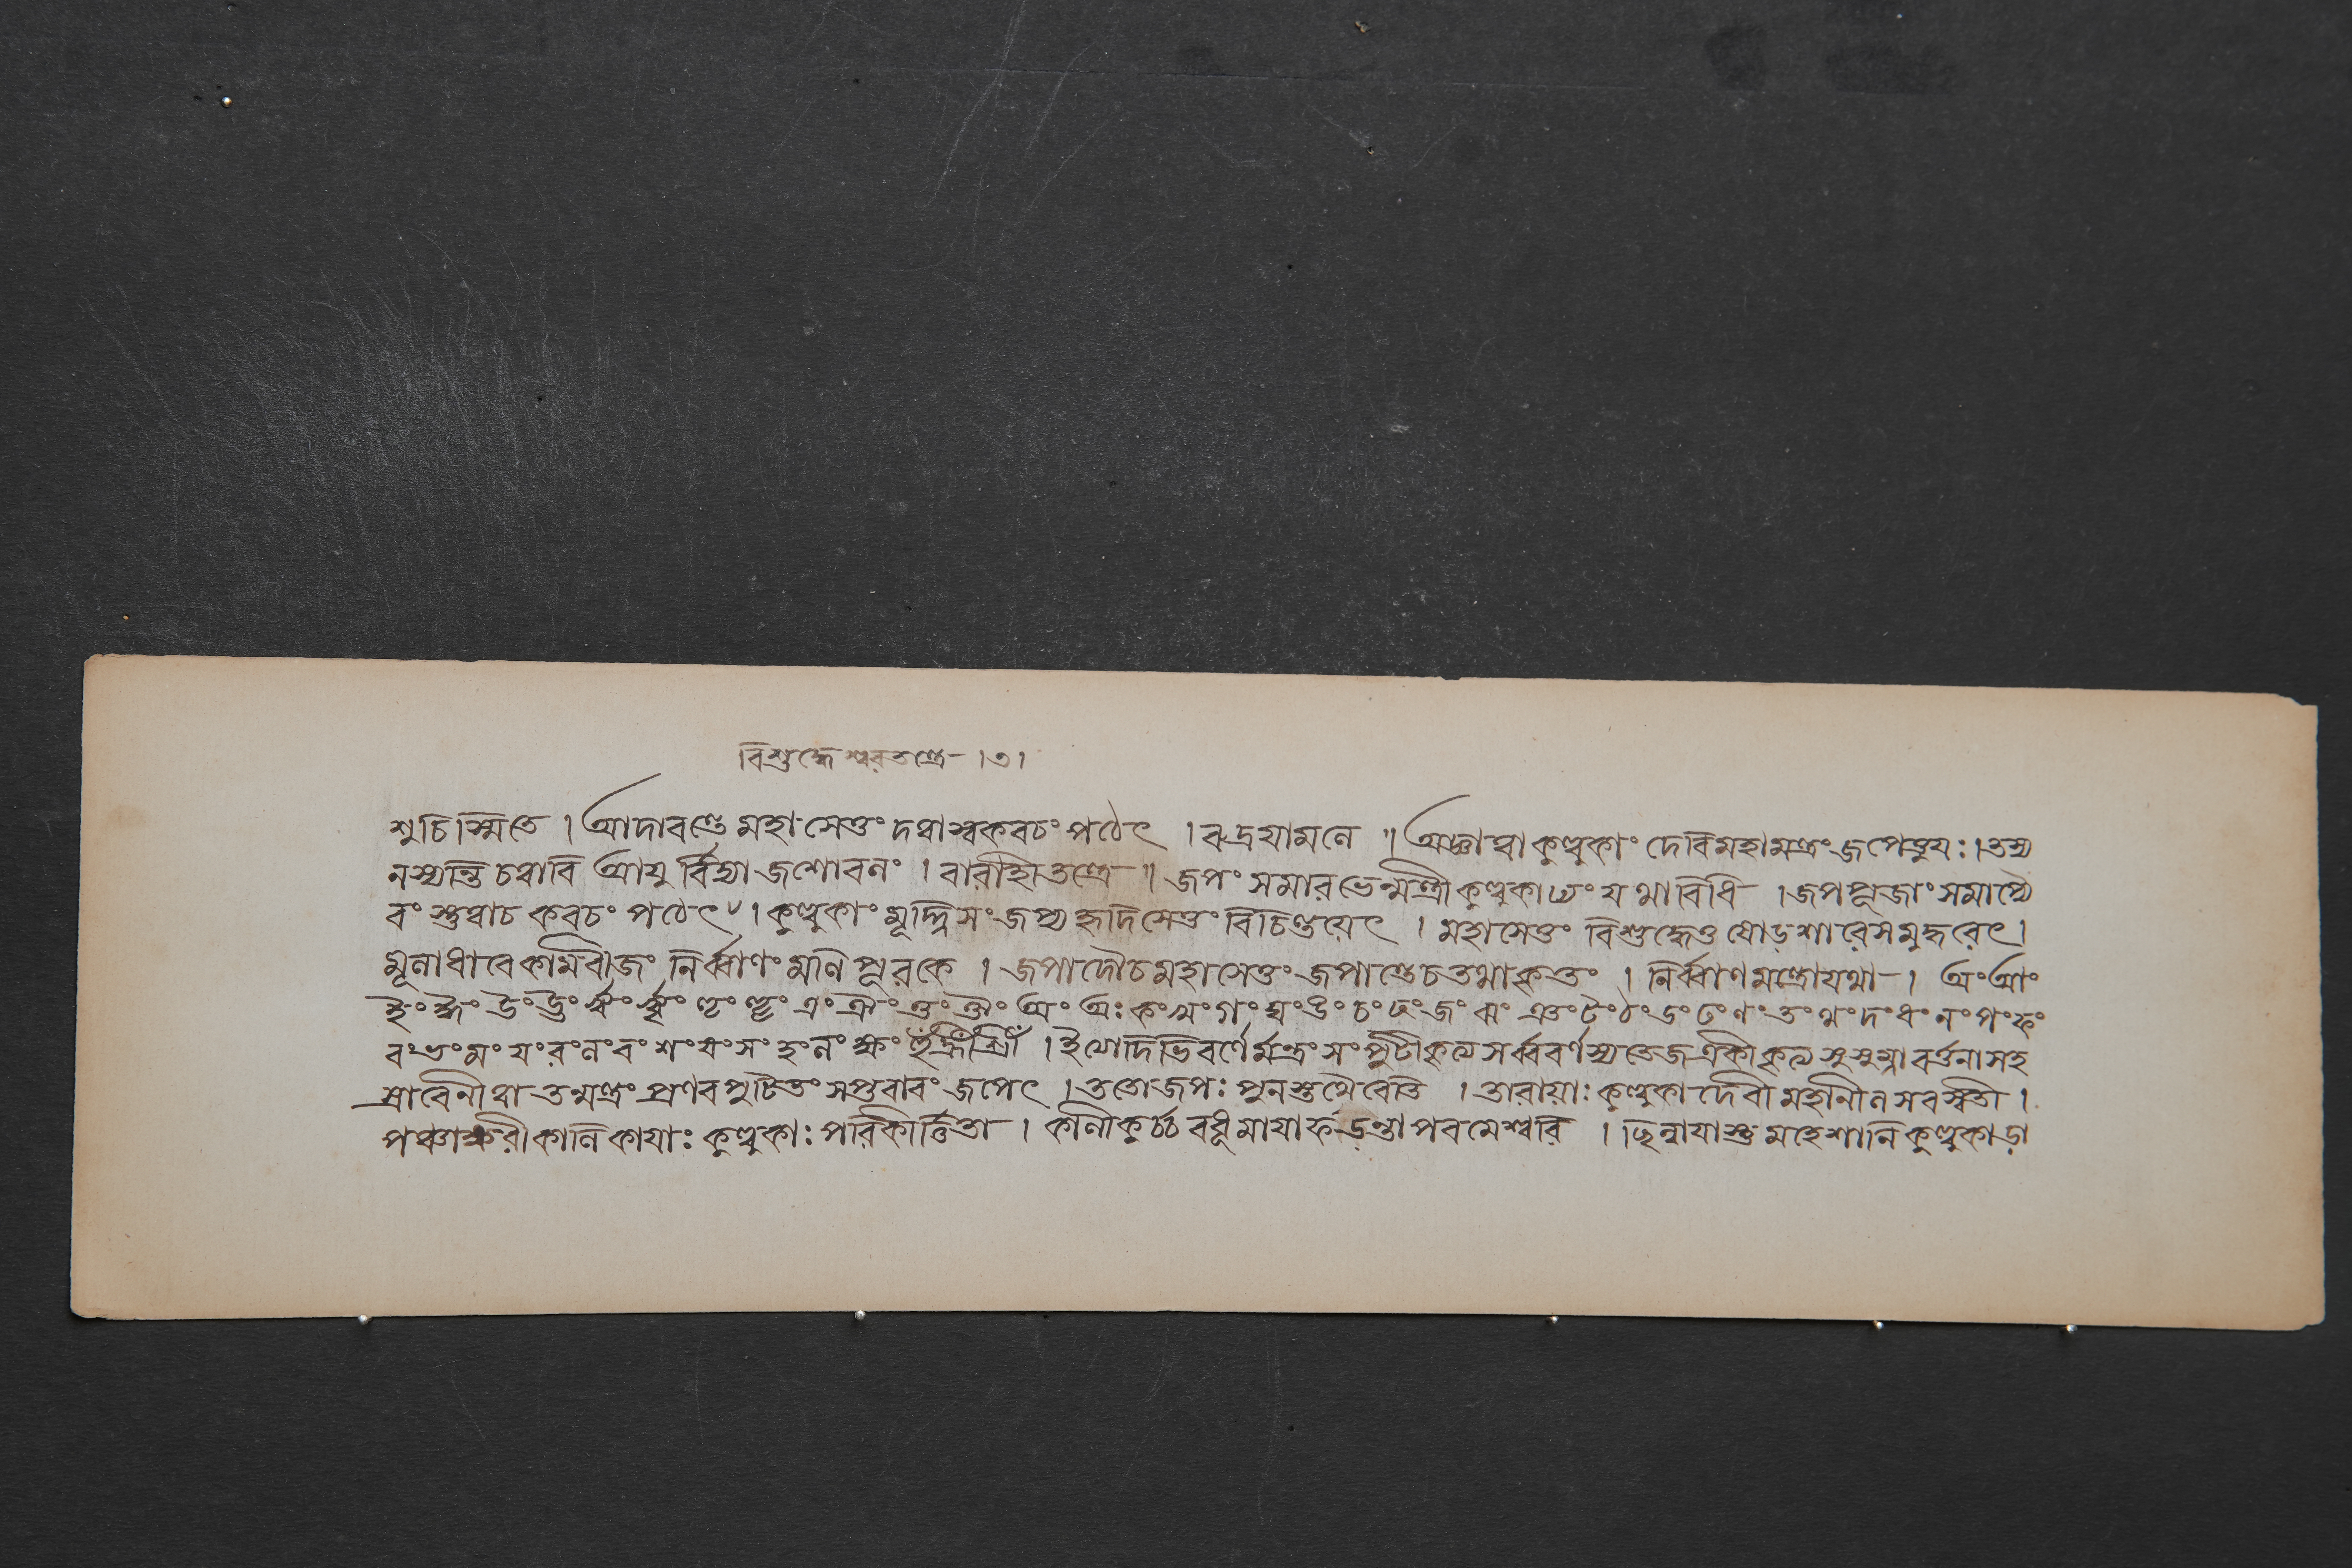 বিশুদ্ধেশ্বরতন্ত্রে ।৩।
শুচিস্মিতে । আদাবন্তে মহাসেতুং দত্বাস্বকবচং পঠেৎ । রুদ্রযামলে ॥ অজ্ঞাত্বা কুল্লুকাং দেবি মহামন্ত্রং জপেত্তুযঃ । তস্য
নস্যন্তি চত্বারি আয়ুর্বিদ্যা জশোবলং । বারাহিতন্ত্রে ॥ জপং সমারভেন্মন্ত্রী কুল্লুকাঢ্যং যথাবিধি । জপপূজাং সমাপ্যৈ
বং স্তুত্বাচ কবচং পঠেৎ । কুল্লুকাং মূর্দ্ধ্নি সংজপ্য হৃদিসেতুং বিচিন্তয়েৎ । মহাসেতুং বিশুদ্ধেতু ষোড়শারে সমুদ্ধরেৎ ।
মূলাধারে কামবীজং নির্ব্বাণং মণিপূরকে । জপাদৌচ মহাসেতুং জপান্তেচ তথাকৃতং । নির্ব্বাণমন্ত্রোযথা । অং আং
ইং ঈং উং ঊং ঋং ৠং ঌং ৡং এং ঐং ওং ঔং অং অঃ কং খং গং ঘং ঙং চং ছং জং ঝং ঞং টং ঠং ডং ঢং ণং তং থং দং ধং নং পং ফং
বং ভং মং যং রং লং বং শং ষং সং হং লং ক্ষং হুঁ হ্রীঁ শ্রীঁ । ইথেদিভিবর্ণের্মন্ত্রং সংপুটীকৃত্য সর্ব্ববর্ণস্য তেজ একীকৃত্য সুসুম্নাবর্ত্তনা সহ
স্রারেনীত্বা তন্মন্ত্রং প্রণবপুটিতং সপ্তবারং জপেৎ । ততোজপঃ পুনস্তথৈবেতি । তারায়াঃ কুল্লুকা দেবী মহানীলসরস্বতী ।
পঞ্চাক্ষরী কালিকায়াঃ কুল্লুকাঃ পরিকীর্ত্তিতা । কালীকূর্চ্চ বধূ মায়া ফড়ন্তা পরমেশ্বরি । ছিন্নায়াস্তু মহেশানি কুল্লুকাষ্টা